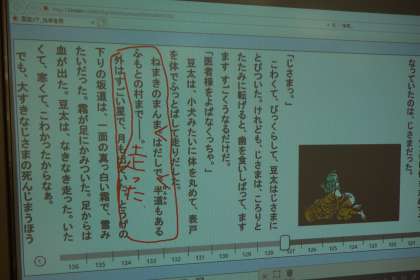 なていたのは、じさまだった。
「じさまっ。」
こわくて、びっくらして、豆太はじさまに
とびついた。けれども、じさまは、ころりと
たたみに転げると、歯を食いしばって、ます
ます すごくうなるだけだ。
「医者様をよばなくっちゃ。」
豆太は、小犬みたいに体を丸めて、表戸
を体でふっとばして走りだした。
ねまきのまんま。はだしで。半道もある
ふもとの村まで――。
外はすごい星で、月も出ていた。とうげの
下りの坂道は、一面の真っ白い霜で、雪み
たいだった。霜が足にかみついた。足からは
血が出た。豆太は、なきなき走った。いた
くて、寒くて、こわかったからなぁ。
でも、大すきなじさまの死んじまうほう
走った
136
135
134
133
132
131
130
129
128
127
126